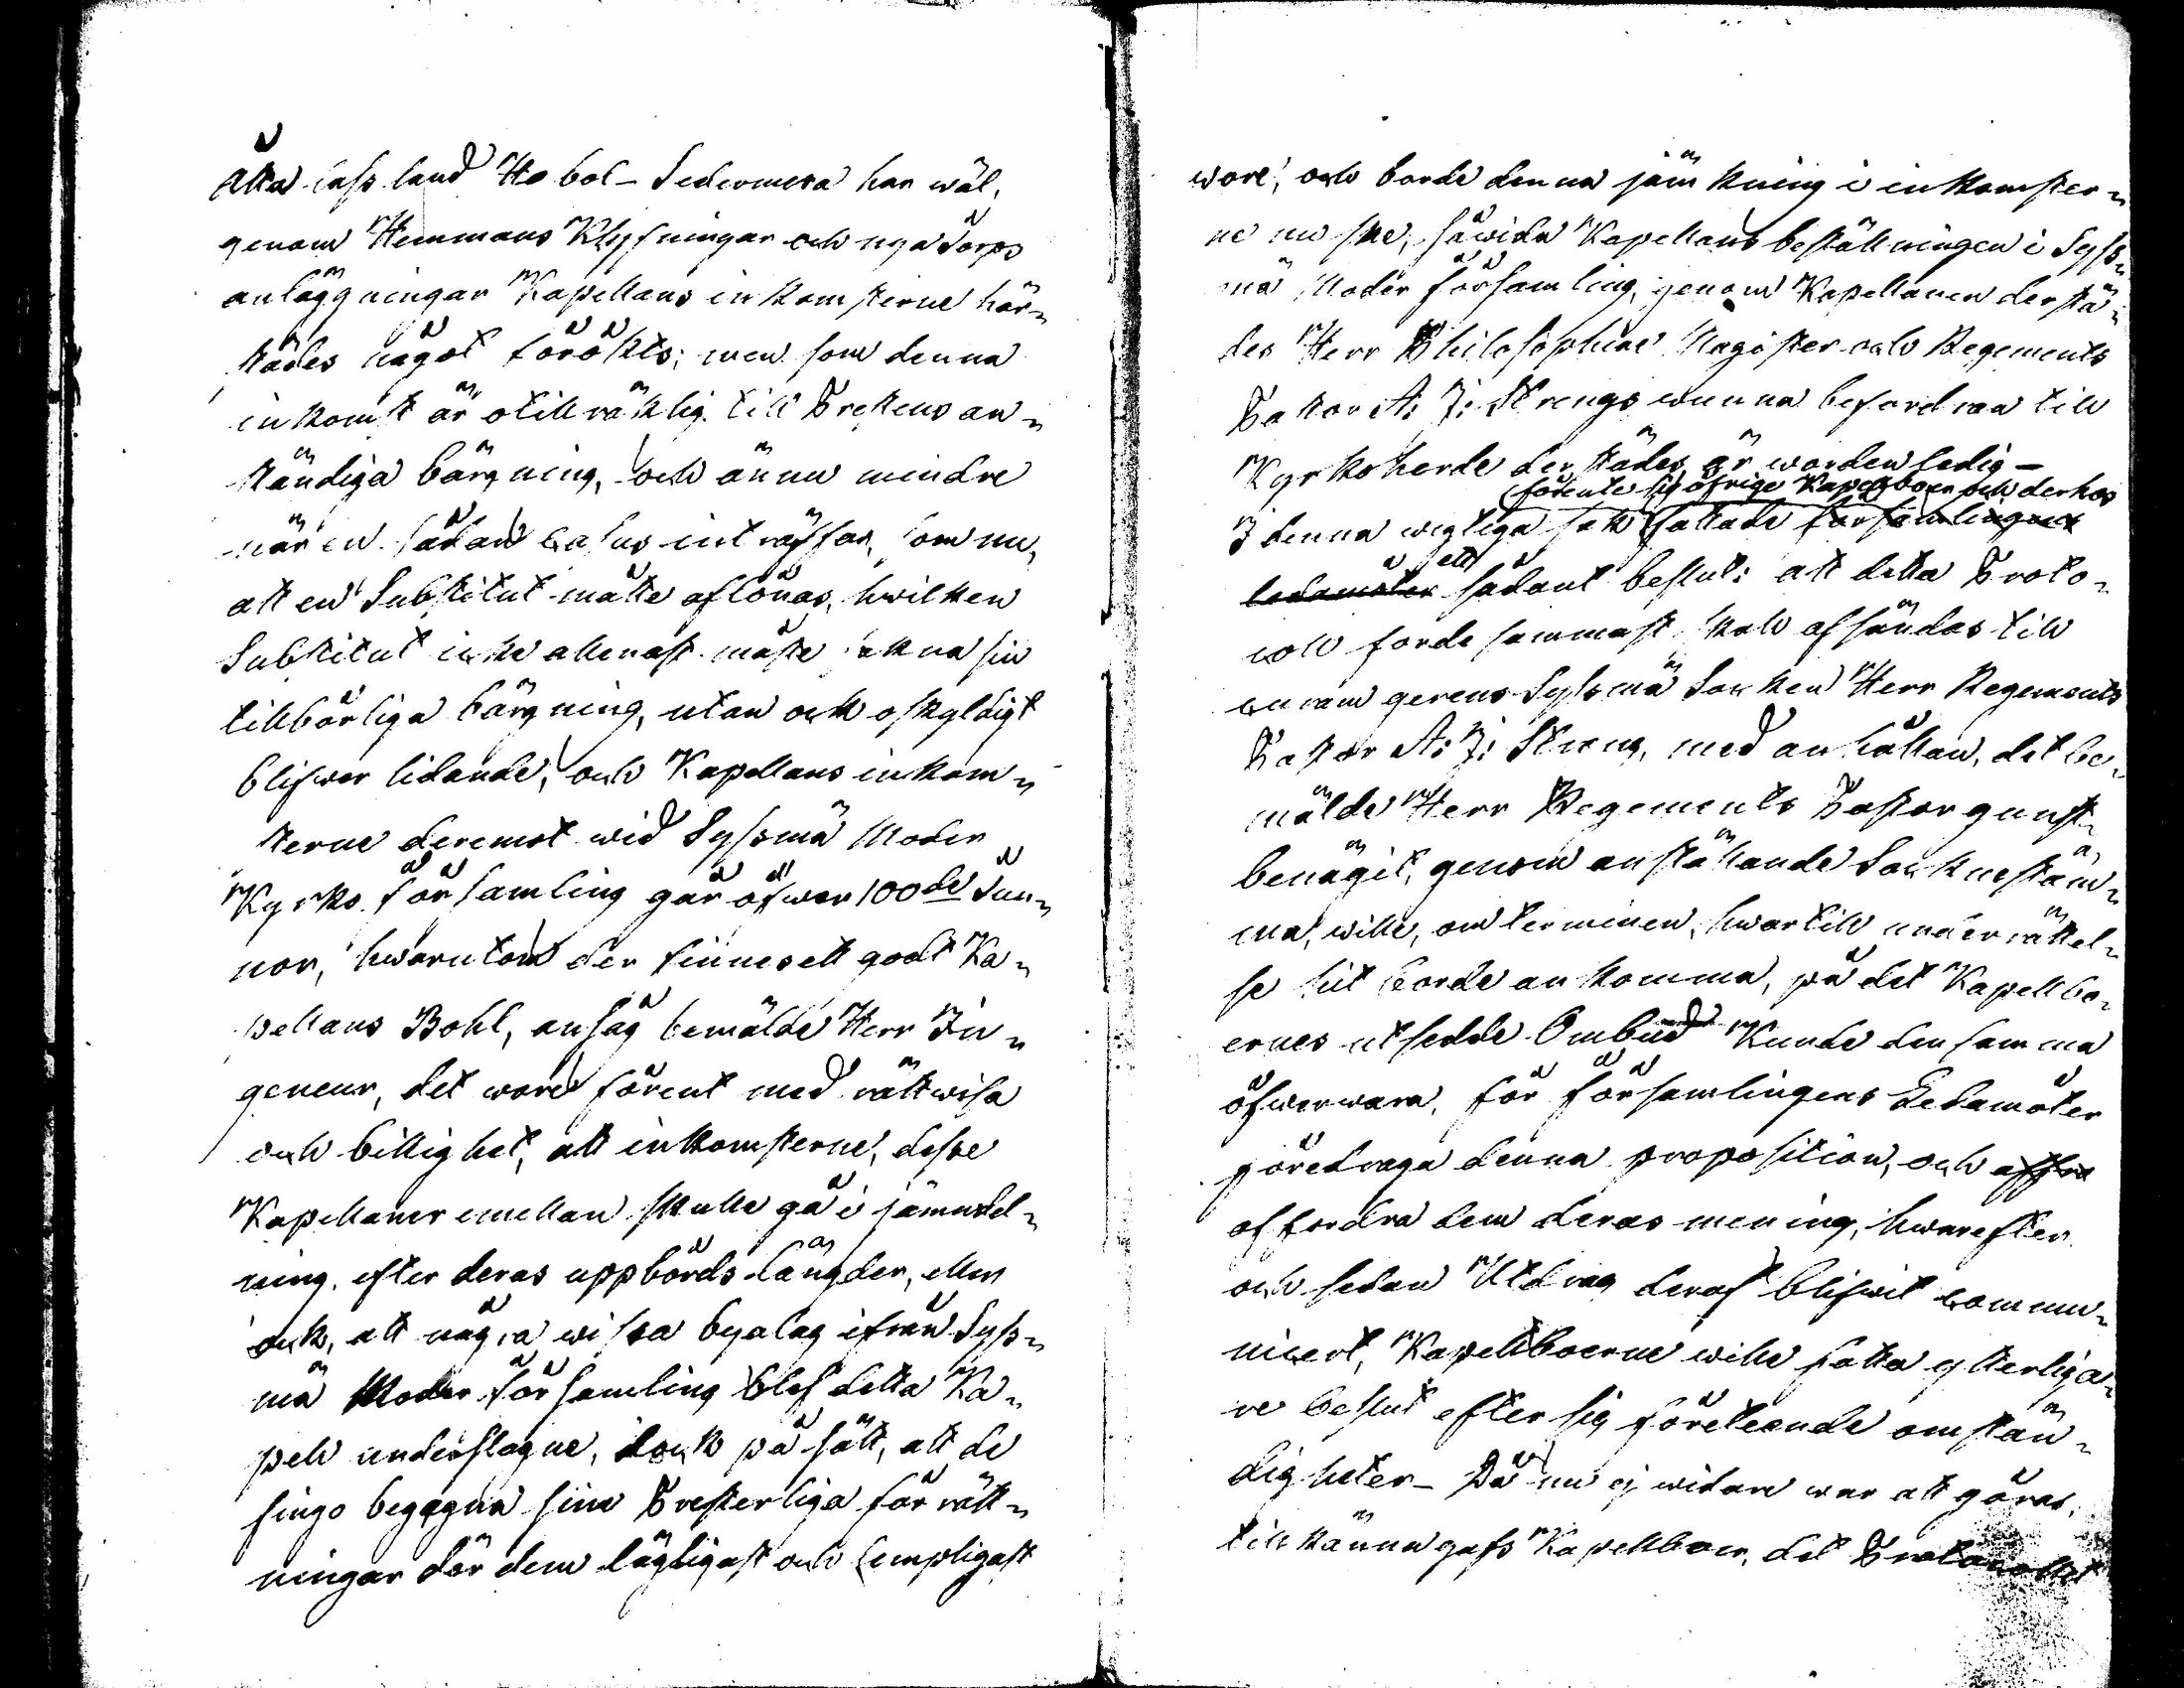 Åtta lass land Ho bol – Sedermera har wäl,
genom Hemmans Klyfningar och nya Torps
anläggningar Kapellans inkomsterne här-
städes något förökts; men som denna
inkomst är otillräklig till Prestens an-
ständiga bärgning, och ännu mindre
när en sådan casus inträffar, som nu,
att en Substitut måtte aflönas, hwilken
Substitut icke allenast måste sakna sin
tillbörliga bärgning, utan ock oskyldigt
blifwer lidande; och Kapellans inkom-
sterne deremot wid Syssmä Moder
Kyrko församling går öfwer 100de Tun-
nor, hwarutom der finnes ett godt Ka-
pellans Bohl, ansåg bemälde Herr In-
geneur, det wore förent med rättwisa
och billighet, att inkomsterne, desse
Kapellaner emellan skulle gå i jämndel-
ning, efter deras uppbörds längder, eller
ock, att några wissa byalag ifrån Syss-
mä Moder församling blef detta Ka-
pell underslagne, dock på sätt, att de
fingo begagna sine Presterliga förrätt-
ningar där dem lägligast och lempligast
wore, och borde denna jämkning i inkomster-
ne nu ske, såwida Kapellans beställningen i Syss-
mä Moder församling, genom Kapellanen derstä-
des Herr Philosophiae Magister och Regements
Pastor A: J: Strengs wunna befordran till
Kyrkoherde derstädes, är worden ledig –
förente sig öfrige Kapellboer och derhos
I denna wigtiga sak fattade församlingens
ledamöter ett sådant beslut: att detta Proto-
coll fordesammast skall afsändas till
curam gerens Syssmä Socken Herr Regements
Pastor A: J: Streng, med anhållan, det be-
mälde Herr Regements Pastor gunst-
benägit, genom anställande Socknestäm-
ma, wille, om terminen, hwartill underrättel-
se hit borde ankomma, på det Kapellbo-
ernes utsedde Ombud Kunde densamma
öfwerwara, för församlingens Ledamöter
föredraga denna proposition, och affor
affordra dem deras mening, hwarefter
och sedan Utdrag deraf blifwit commu-
nicert, Kapellboerne wille fatta ytterliga-
re beslut efter sig företeende omstän-
digheter – Då nu ej widare war att göras,
till känna gafs Kapellboer, det Protocollet